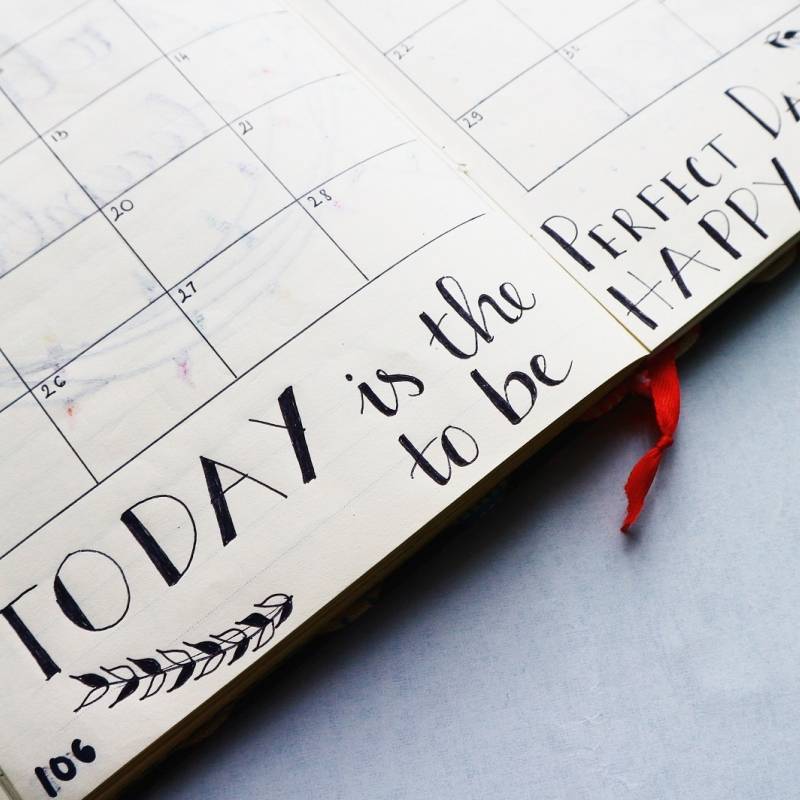 14
13
21
20
28
27
26
TODAY is the
to be
106
22
31
29
PERFECT DA
HAPPY